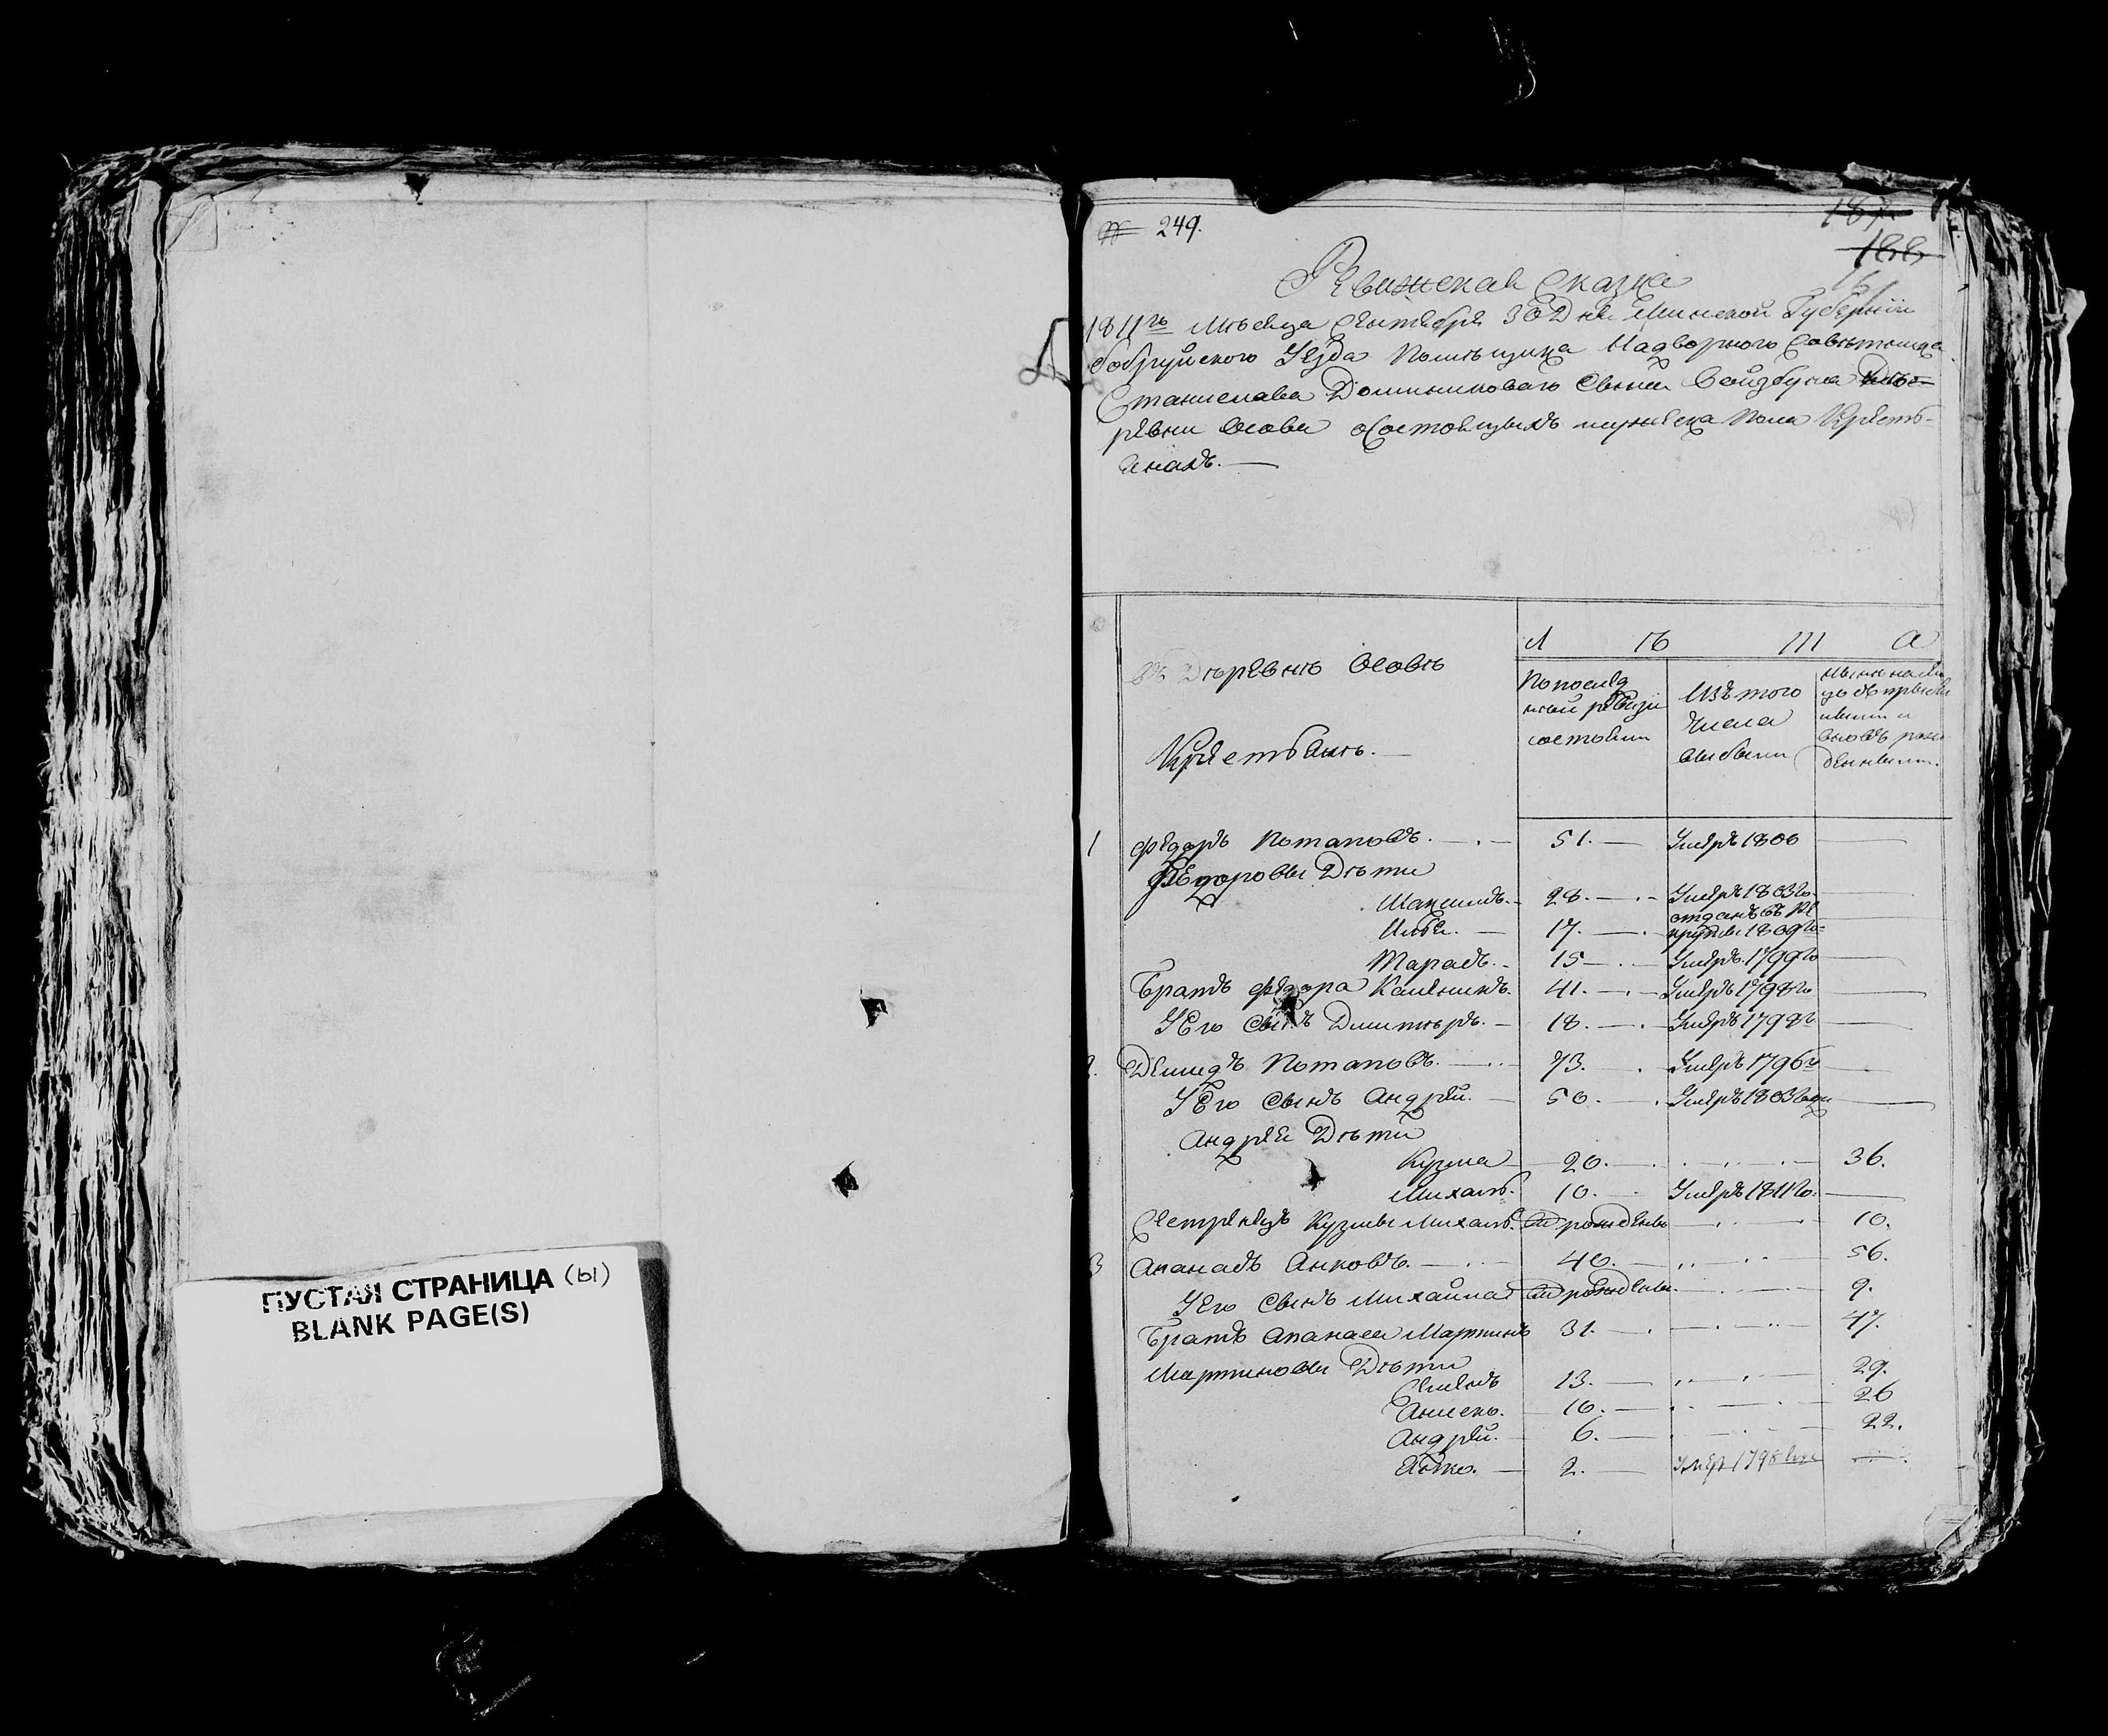 ПУСТАЯ СТРАНИЦА (ы)
BLANK PAGE(S)
№ 249.
187
188
Ревижская сказка
1811го Месяца Сентября 30 Дня Минской Губернии
бобруйского Уезда Помещика Надворного Советника
Станислава Доминикового Сына Войзбуна Де-
ревни Осова о состоящихъ мужеска пола Кресть-
янахъ.
въ Деревне Осове
Крестьянъ.
Л Ѣ Т А
По послед
ней ревизи
состояли
Изъ того
числа
выбыли
1 Федоръ Потаповъ. 51. Умеръ 1806
Федоровы Дети
Максимъ. 28. Умеръ 1803го
отданъ въ Ре
Илья. 17. круты 1809го
Тарасъ. 15 Умеръ 1799го
Братъ Федора 41. Умеръ 1798го
Его Сынъ Дмитеръ. 18. Умеръ 1799го
2. Демидъ Потаповъ. 73. Умеръ 1796го
Его Сынъ Андрей. 50. Умеръ 1803года
Андрея Дети
Кузма 20. 36.
Михаль. 10. Умеръ 1811го
Кузмы Михаль. 10.
3 Апанасъ Янковъ. 40. 56.
Его Сынъ Михайла 9.
Братъ Апанаса Мартинъ 31. 47.
Мартиновы Дети
Семенъ 13. 29.
10. 26
Андрей. 6. 22.
2. Умеръ 1798года